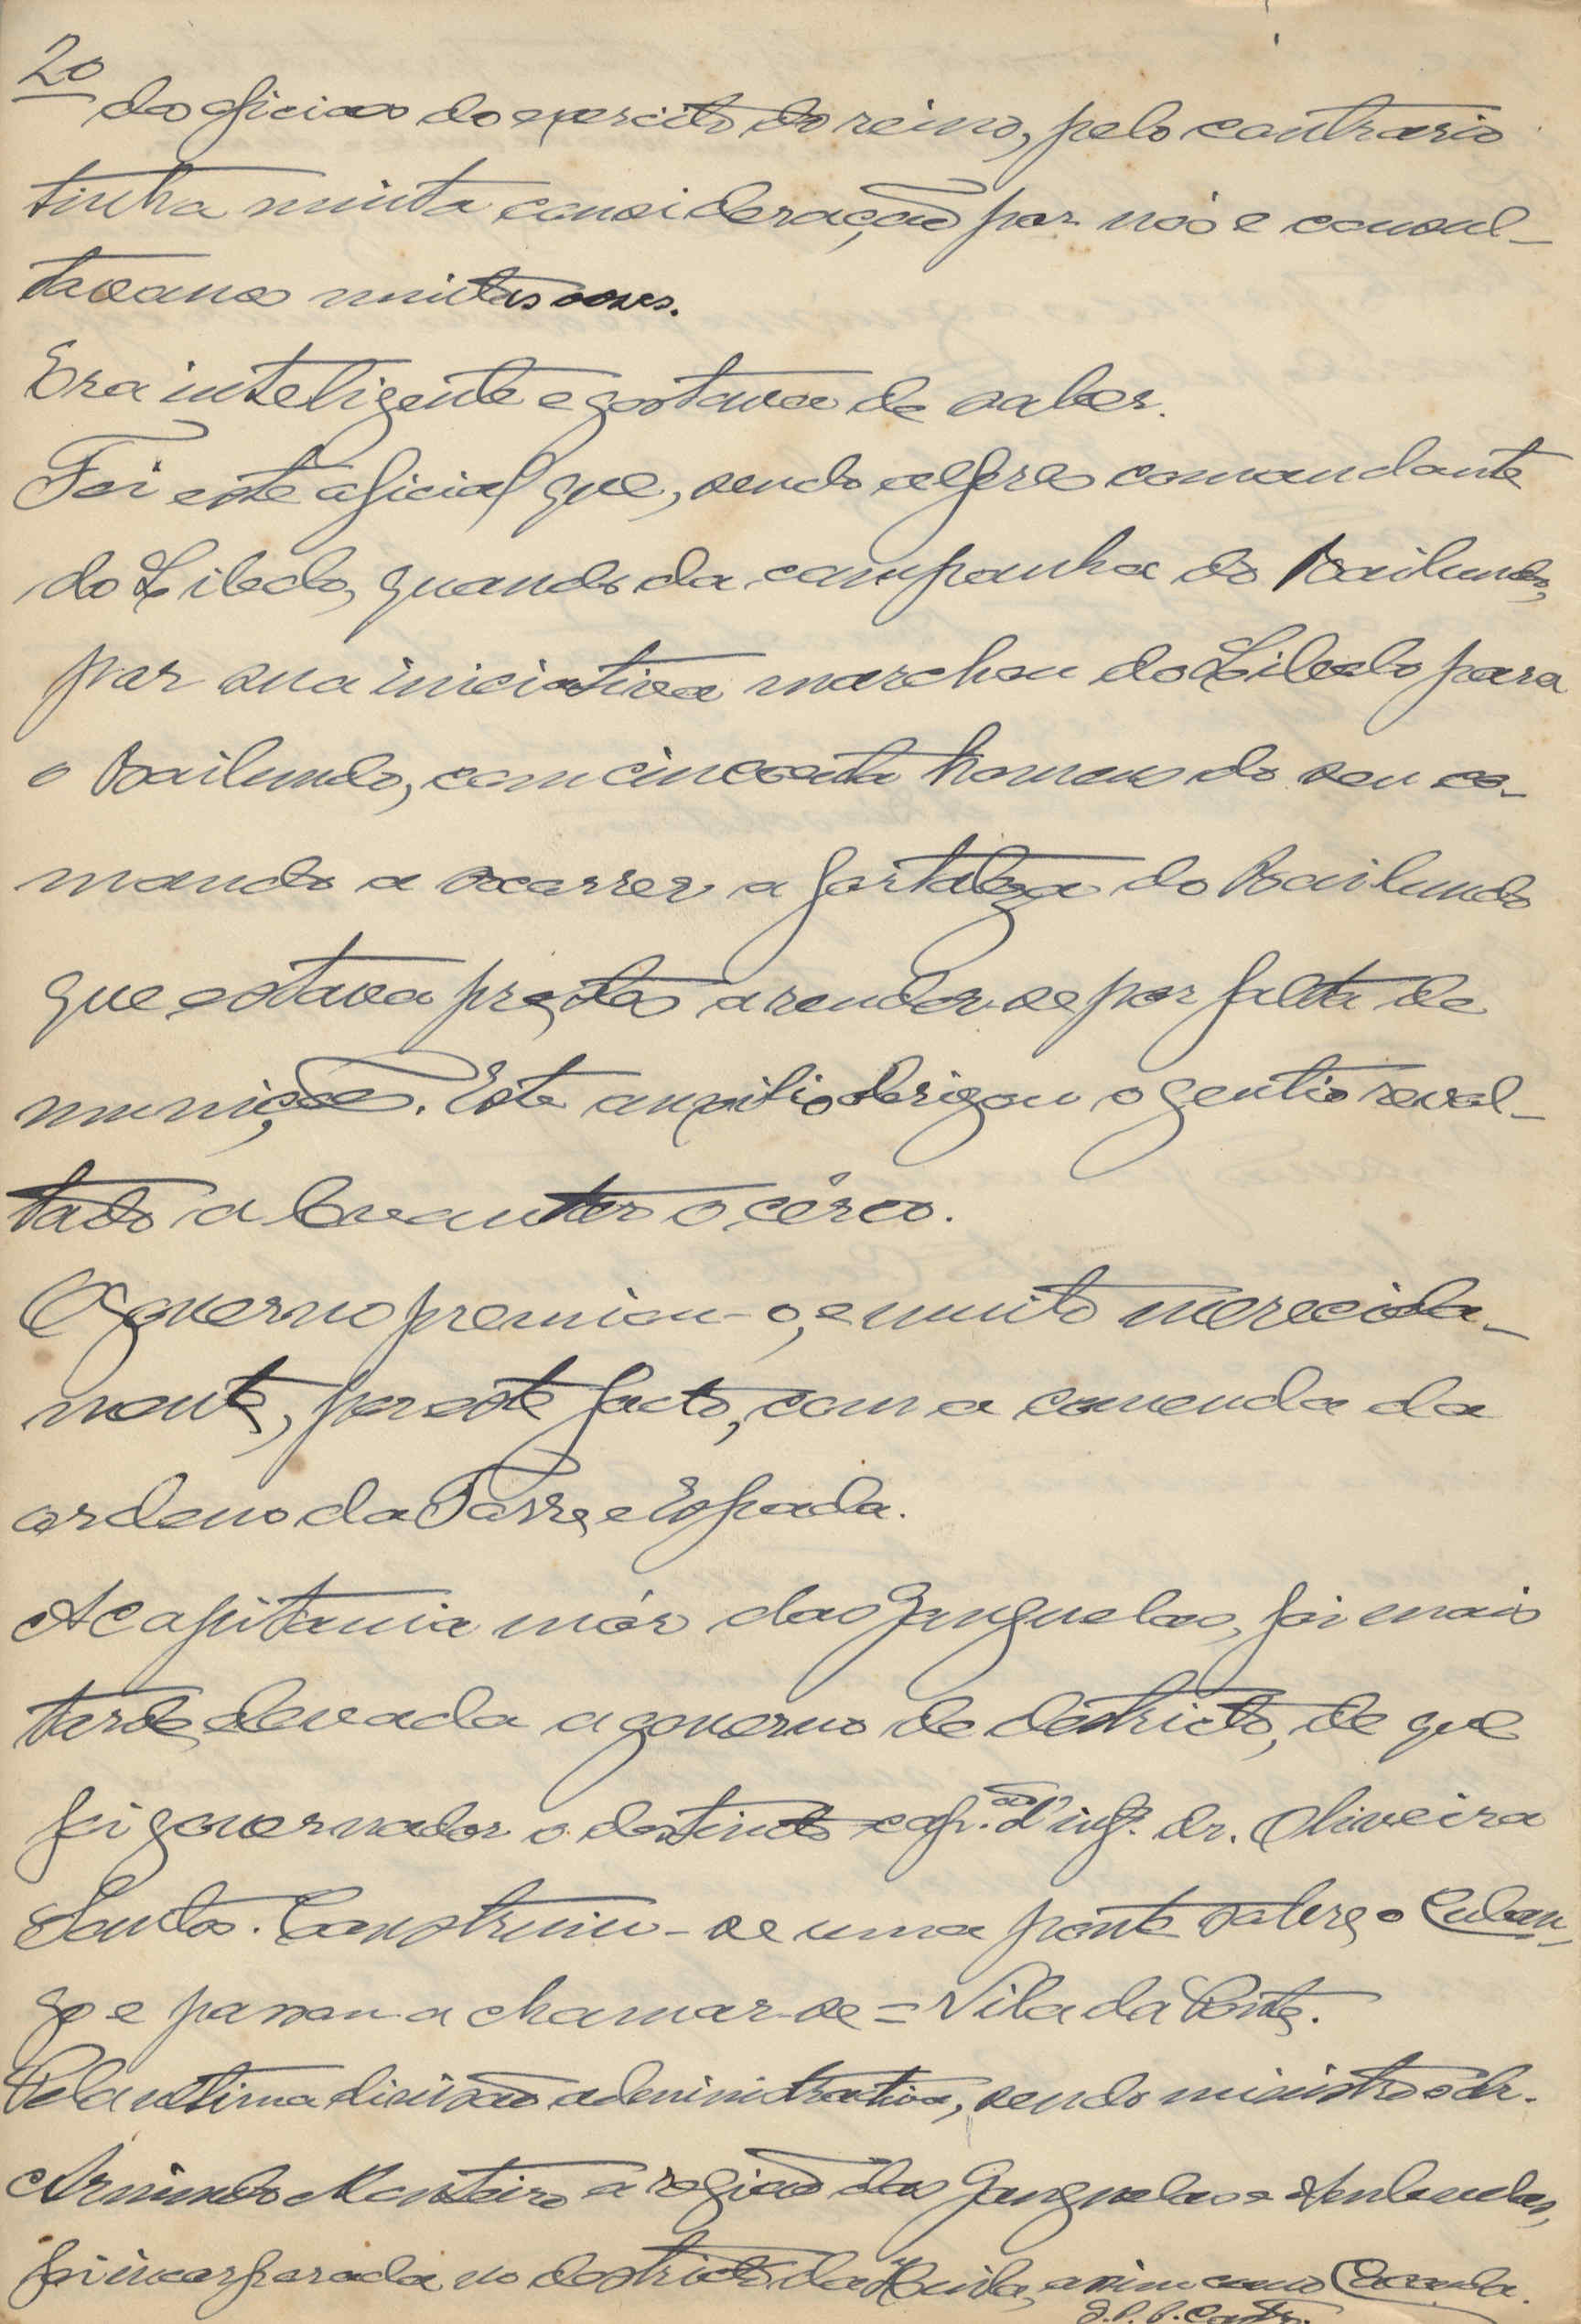 20
dos oficiaes do exercito do reino, pelo contrario
tinha muita consideração por nós e consul-
tavanos muitas vezes.
Era inteligente e gostava de saber.
Foi este oficial que, sendo alferes comandante
do Libolo, quando da campanha do Bailundo,
por sua iniciativa marchou do Libolo para
o Bailundo, com cincoenta homens do seu co-
mando a socorrer a fortaleza do Bailundo
que estava prestes a render-se por falta de
munições. Este auxilio obrigou o gentio revol-
tado a levantar o cêrco.
O governo premiou-o, e muito merecida-
mente, por este facto, com a comenda da
ordem da Torre e Espada.
A capitania mór dos Ganguelas, foi mais
tarde elevada a governo de destricto, de que
foi governador o destincto cap.ão d'inf.ª dr. Oliveira
Santos. Construiu-se uma ponte sobre o Cuban-
go e passou a chamar-se = Vila da Ponte.
Pela ultima divisão administrativa, sendo ministro o dr.
Armindo Monteiro a região dos Ganguelas e Ambuelas,
foi incorporada no destricto da Huila, assim como